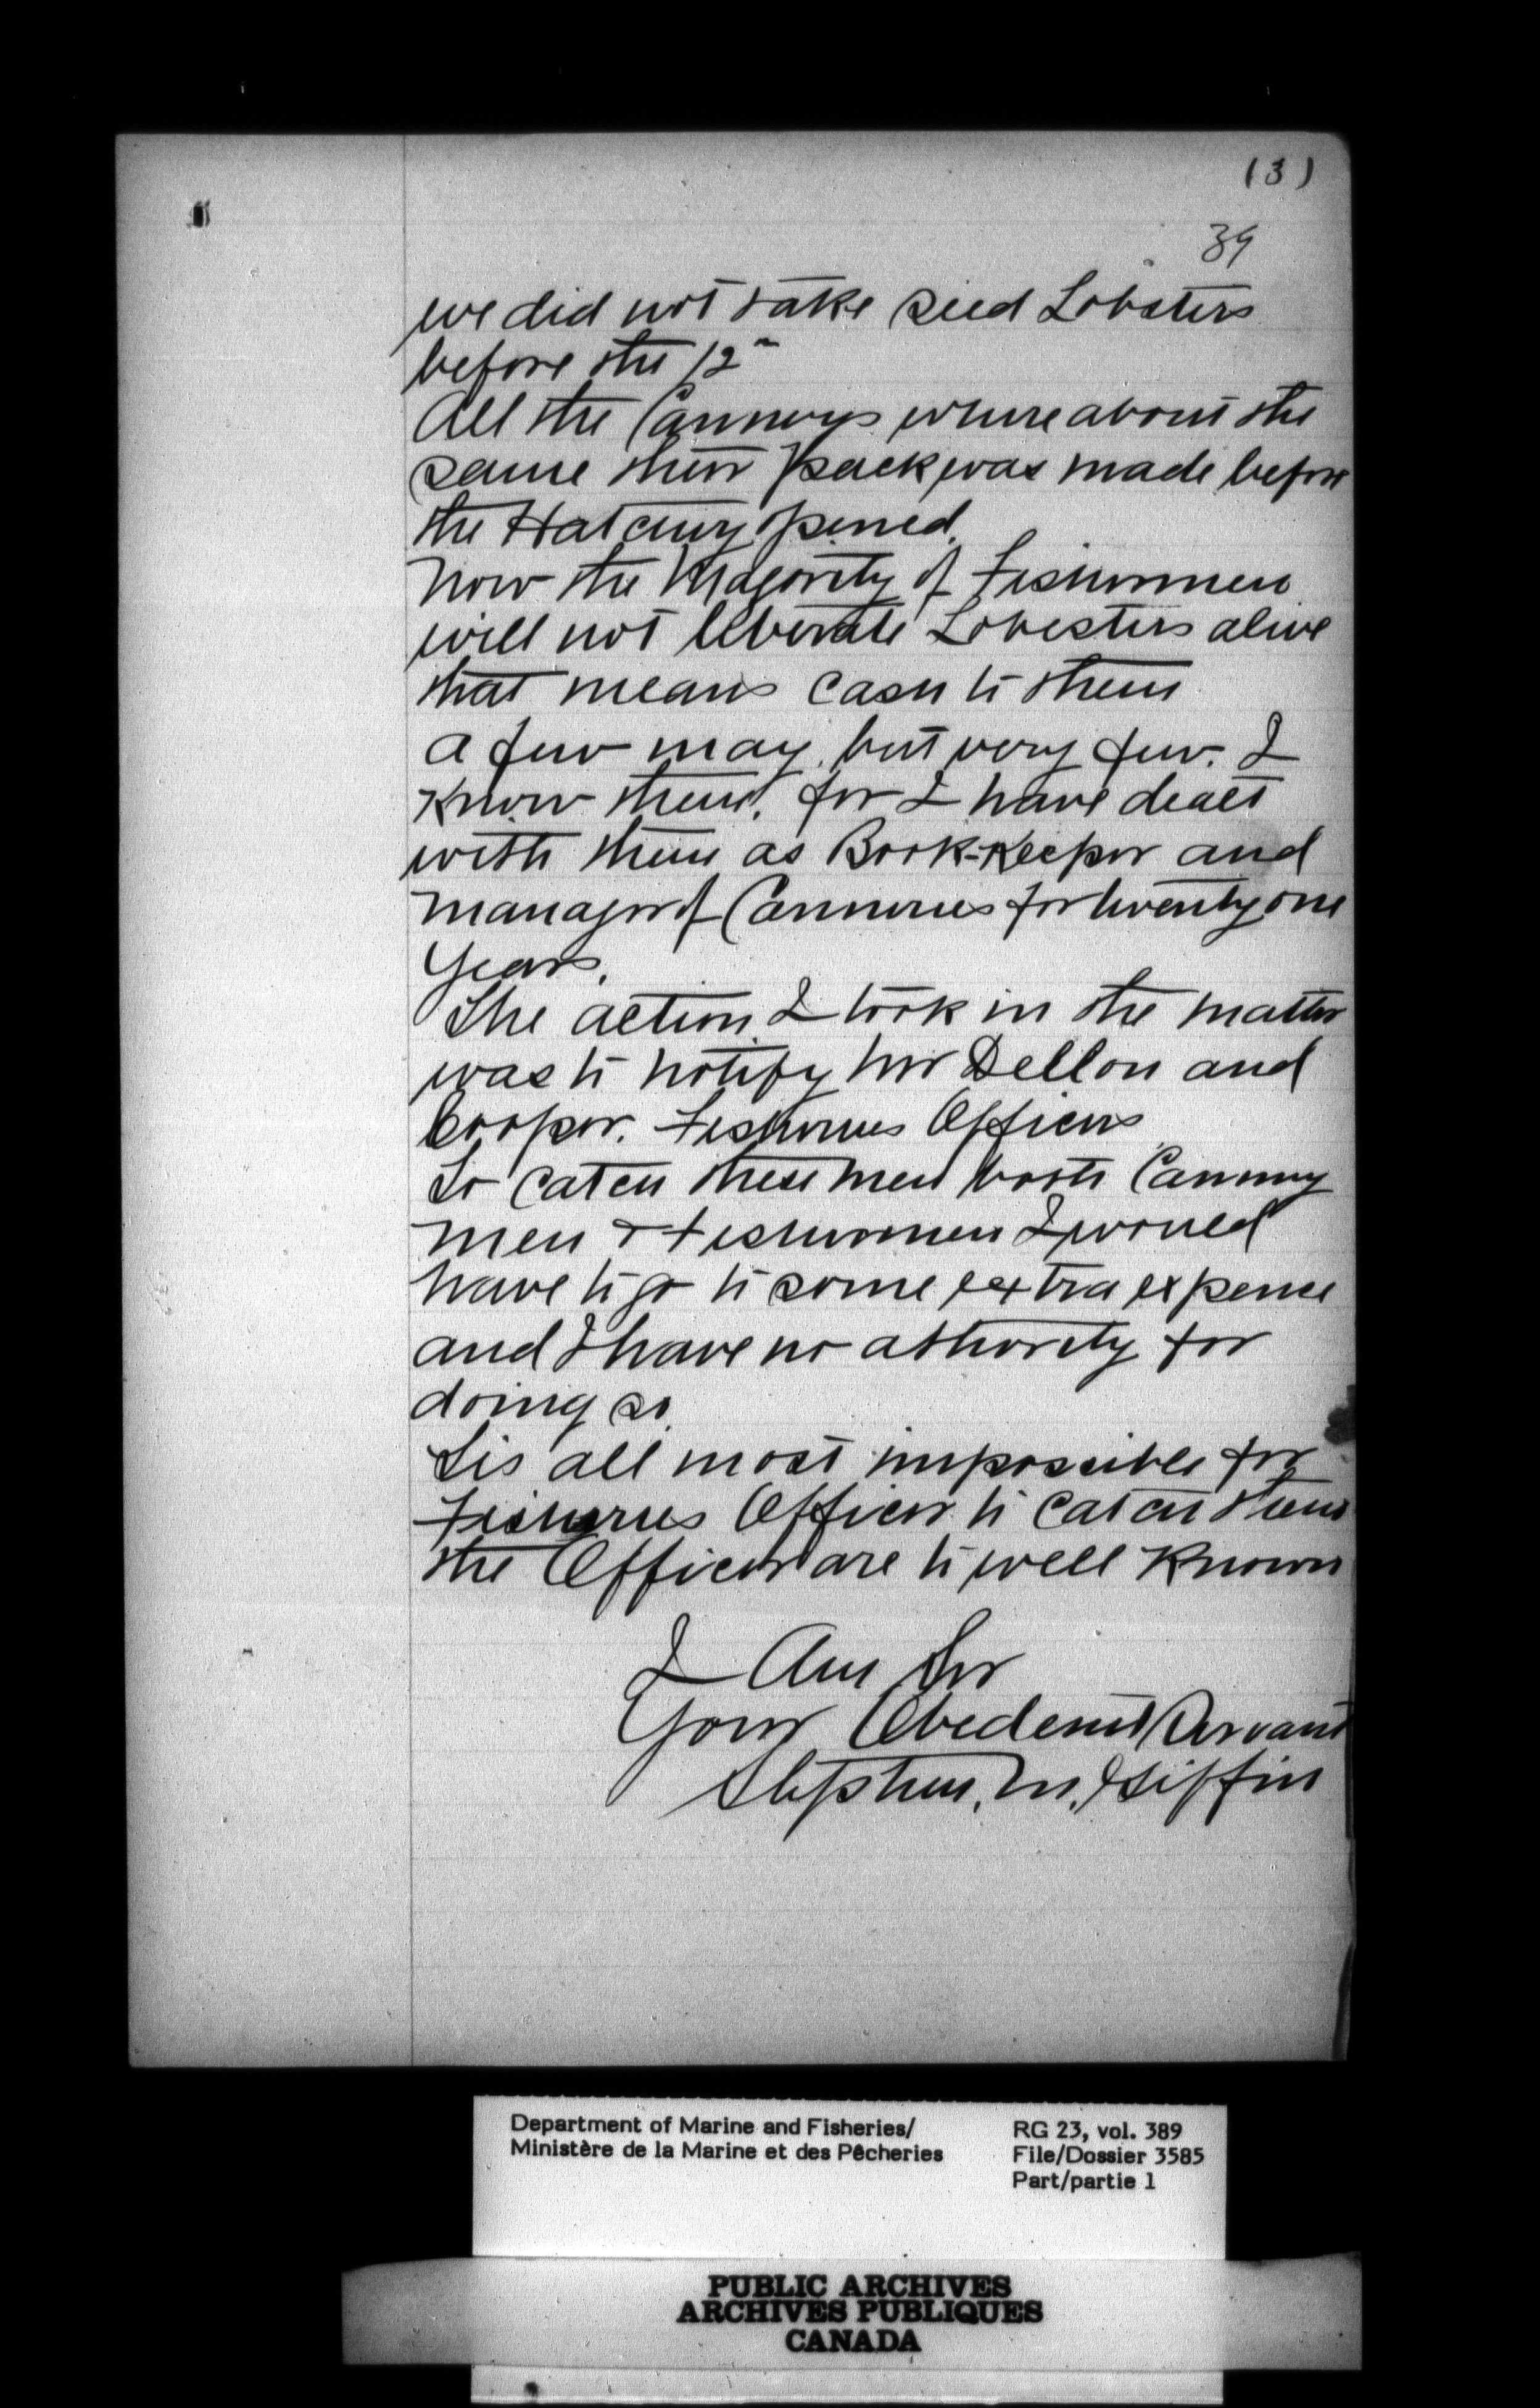 (3)
39
we did not take seed Lobsters
before the 12"
All the Cannerys where about the
same their pack was made before
the Hatchery opened.
Now the Magority of Fishermen
will not liberate Lobesters alive
that means cash to them
a few may. but very few. I
know them. for I have dealt
with them as Book-Keeper and
manager of Canneries for twenty one
years.
The action I took in the matter
was to notify Mr Dellon and
Cooper. Fisheries Officers
To catch these men both Cannery
men & Fishermen I would
have to go to some extra expense
and I have no athority for
doing so.
Tis all most impossible for
Fisheries Officer to catch them
the Officers are to well known
I Am Sir
Your Obedent Servant
Stephen. M. Giffin
Department of Marine and Fisheries/
Ministère de la Marine et des Pêcheries
RG 23, vol. 389
File/Dossier 3585
Part/partie 1
PUBLIC ARCHIVES
ARCHIVES PUBLIQUES
CANADA